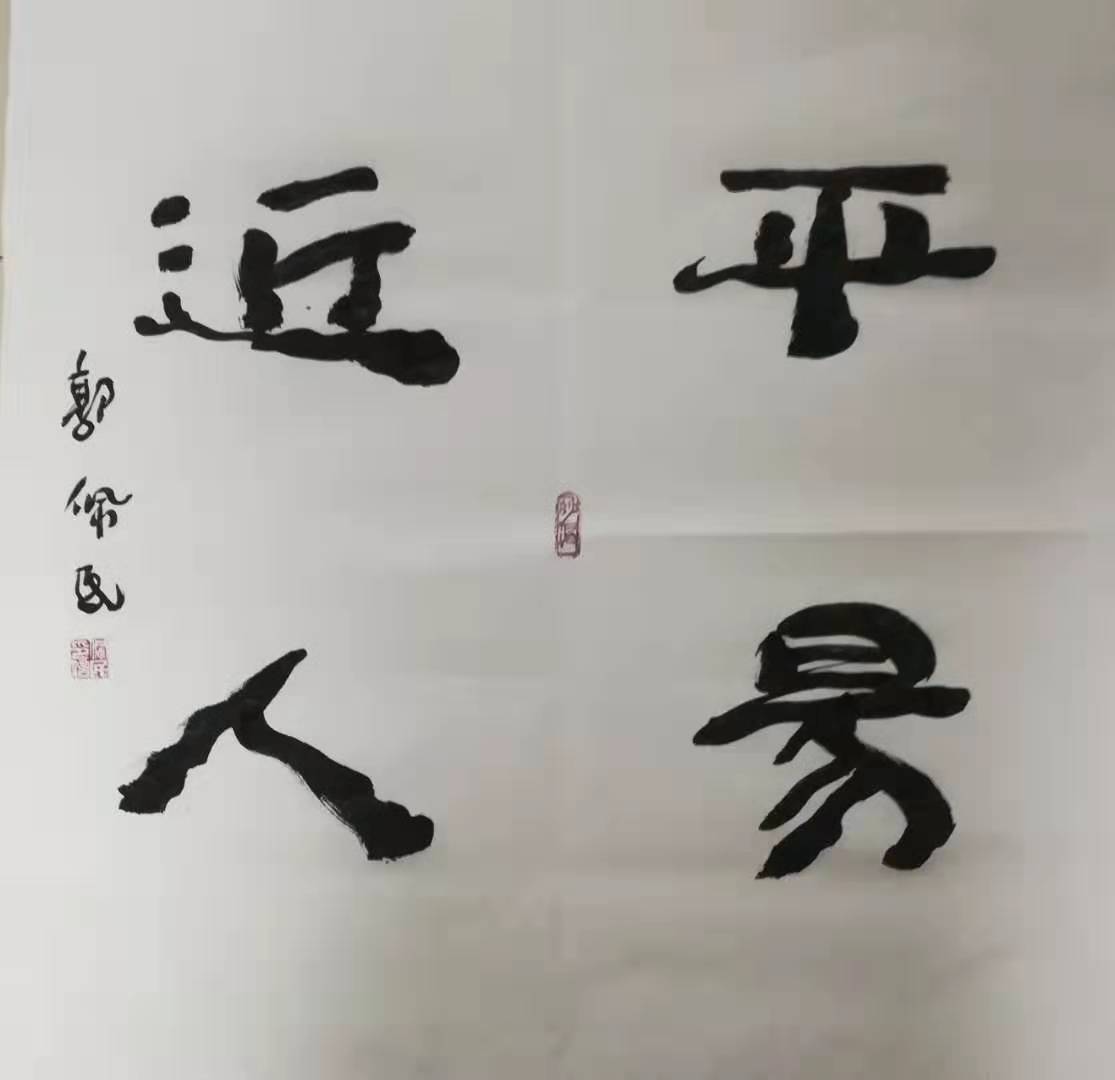 平易
近人
郭佩民